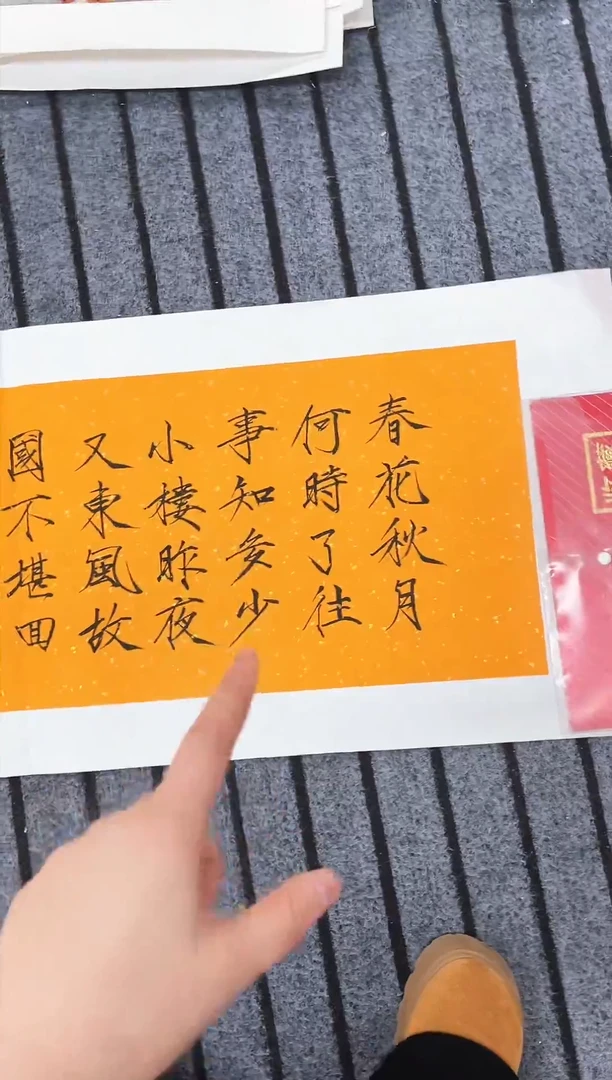 春花秋月
何時了往
事知多少
小樓昨夜
又東風故
國不堪回